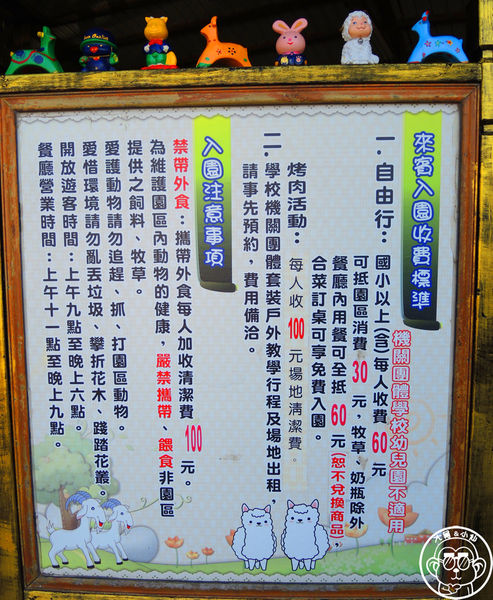 來賓入園收費標準
機關團體學校幼兒園不適用
一．自由行：國小以上(含)每人收費 60 元
可抵園區消費 30 元，牧草、奶瓶除外
餐廳內用餐可全抵 60 元(恕不兌換商品)，
合菜訂桌可享免費入園。
烤肉活動：每人收 100 元場地清潔費。
二．學校機關團體套裝戶外教學行程及場地出租，
請事先預約，費用備洽。
入園注意事項
禁帶外食：攜帶外食每人加收清潔費 100 元。
為維護園區內動物的健康，嚴禁攜帶、餵食非園區
提供之飼料、牧草。
愛護動物請勿追趕、抓、打園區動物。
愛惜環境請勿亂丟垃圾、攀折花木、踐踏花叢。
開放遊客時間：上午九點至晚上六點。
餐廳營業時間：上午十一點至晚上九點。